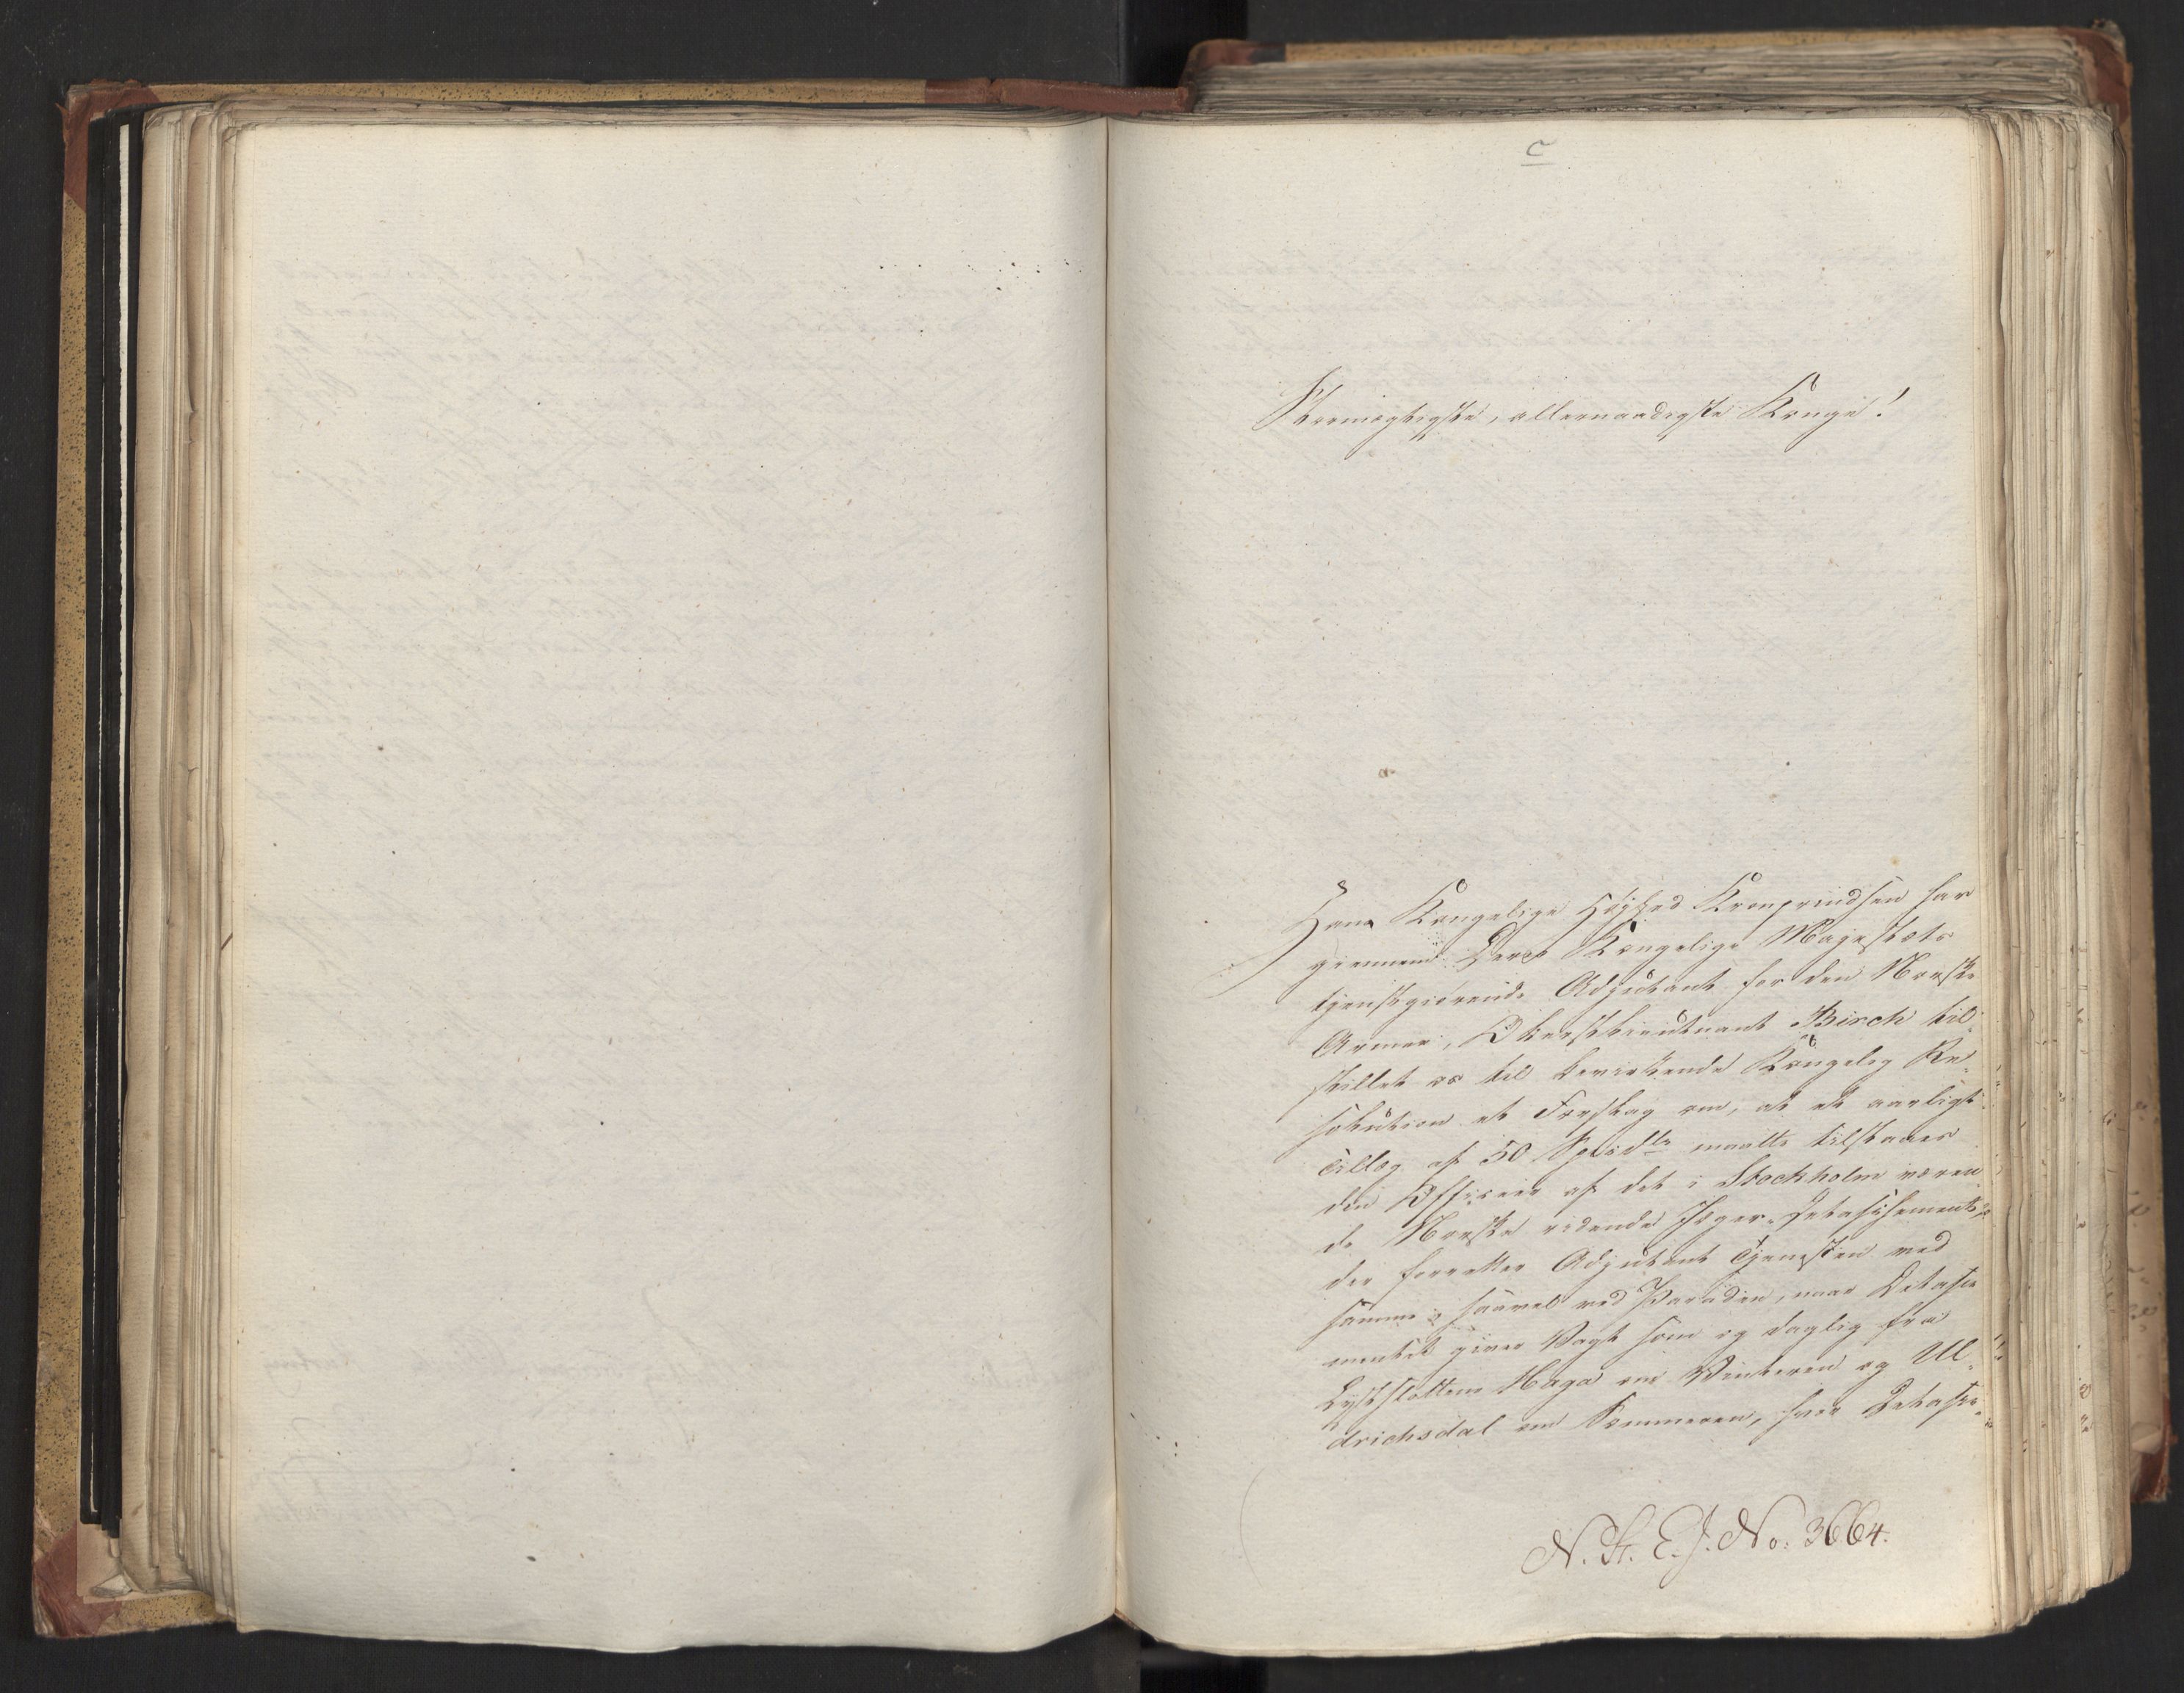 c
Stormægtigste, allernaadigste Konge!
Hans Kongelige Høyhed Kronprindsen har
giennem Deres Kongelige Majestæts
tjenstgiørende Adjutant for den Norske
Armee, Oberstlieutnant Birch til-
stillet os til bevirkende Kongelig Re-
solution et Forslag om, at et aarligt
Tillæg af 50 Spécdlr maatte tilstaaes
den Officeer af det i Stockholm væren-
de Norske ridende Jæger-Detaschement,
der forretter Adjutant Tjenesten ved
samme, saavel ved Paraden, naar Detasche
mentet giver Vagt som og daglig fra
Lystslottene Haga om Vinteren og Ul-
drichsdal om Sommeren, hvor Detasche-
N. St. E. J. No. 3664.